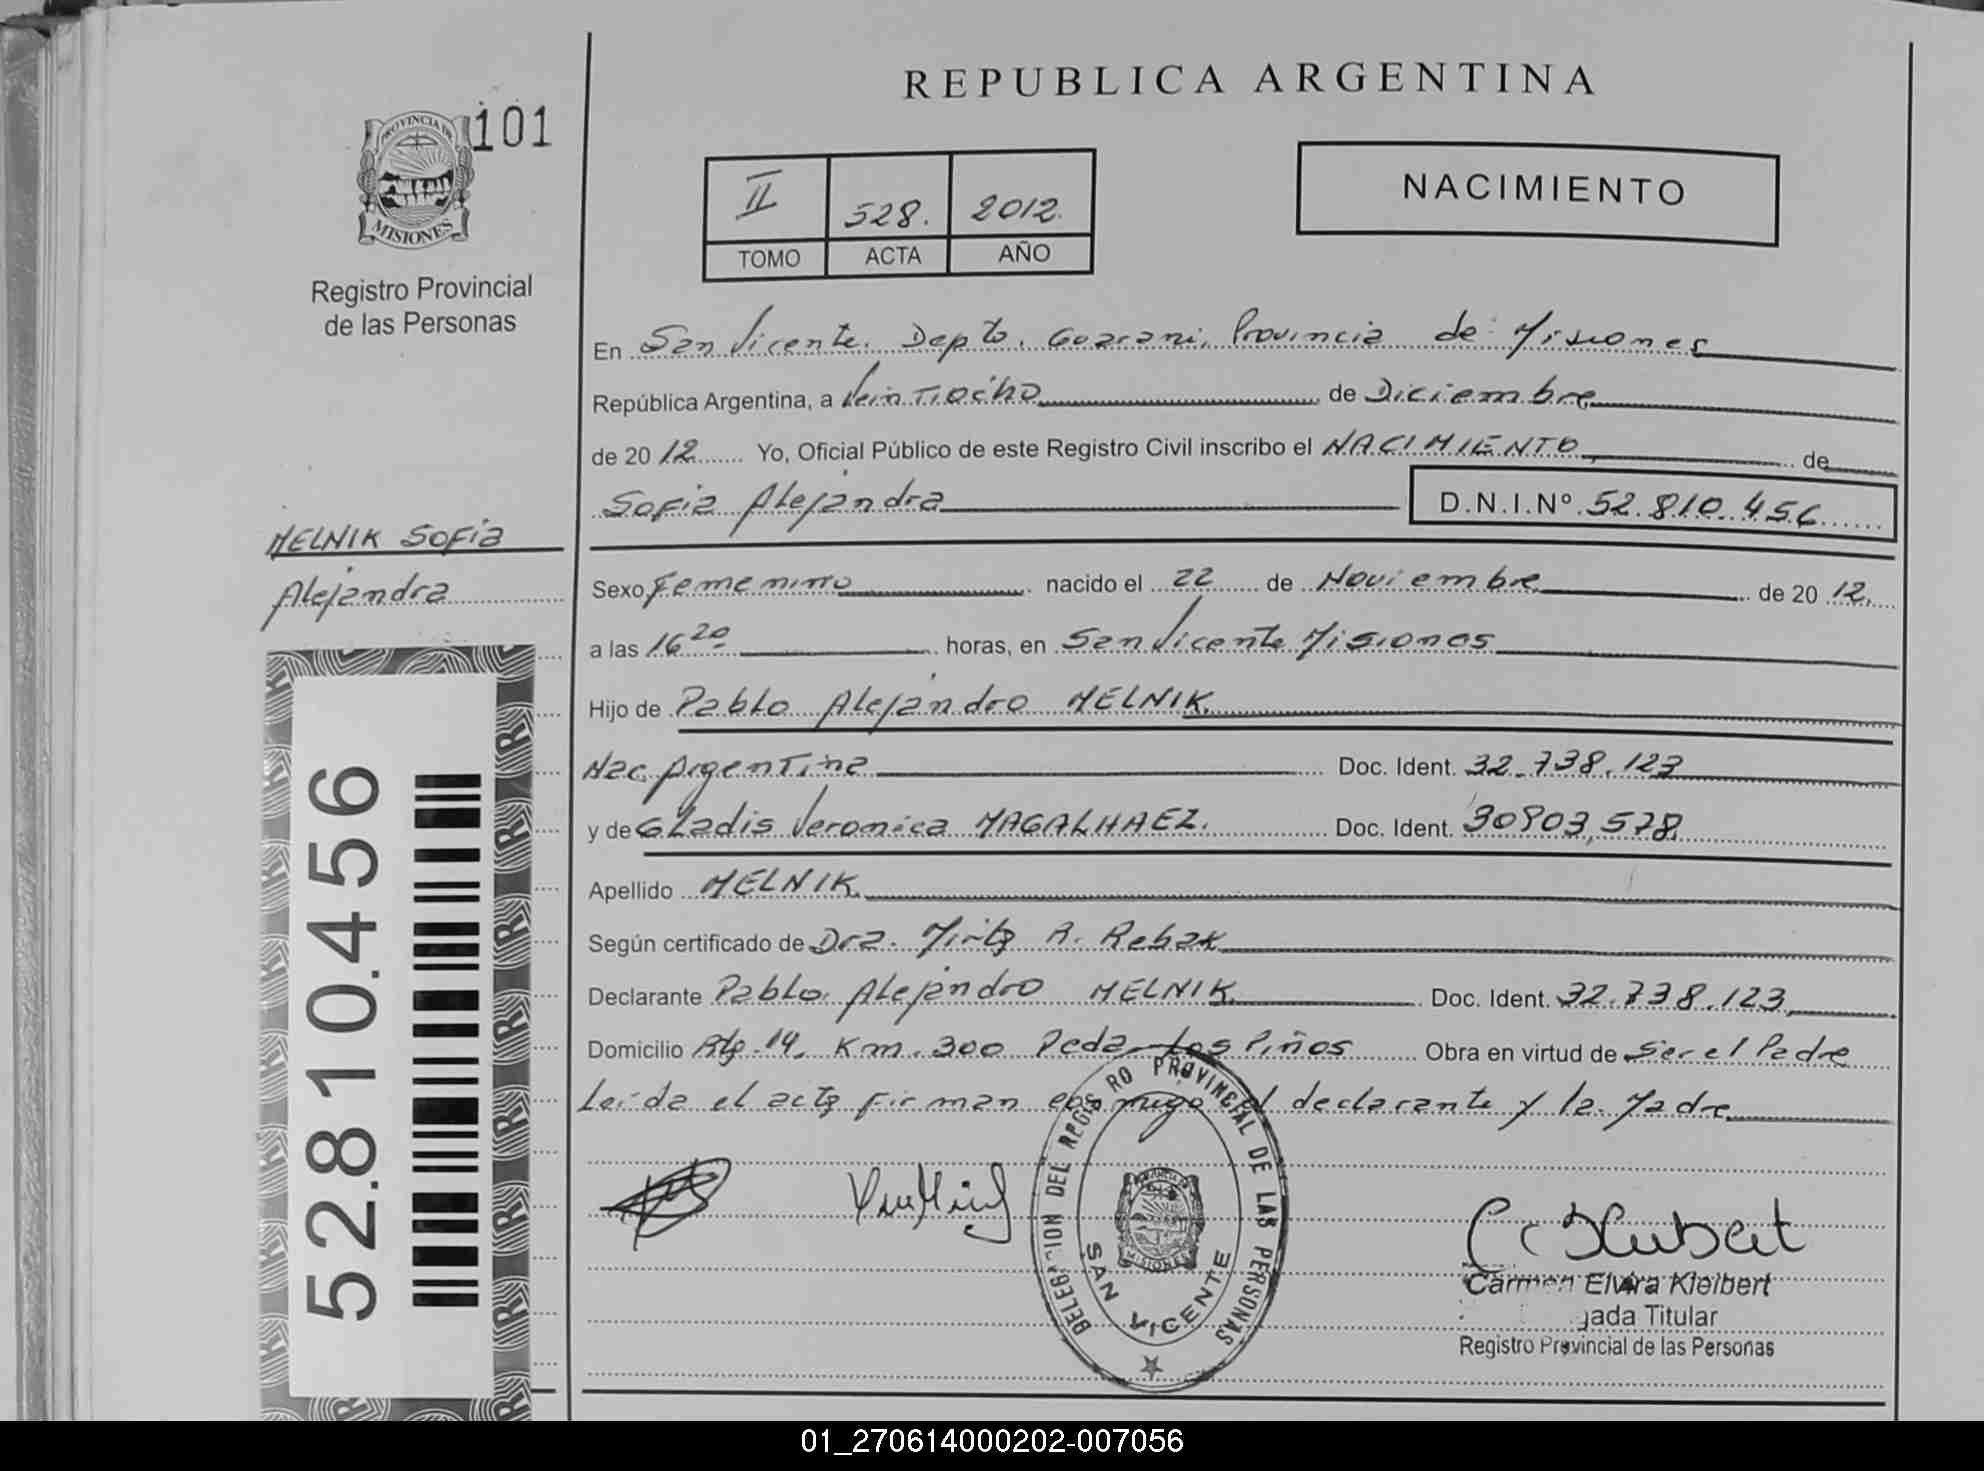 REPUBLICA ARGENTINA
PROVINCIA DE
MISIONES
101
Registro Provincial
de las Personas
II 528. 2012.
TOMO ACTA AÑO
NACIMIENTO
En San Vicente. Depto. Guarani, Provincia de Misiones
República Argentina, a Veintiocho de Diciembre
de 2012 Yo, Oficial Público de este Registro Civil inscribo el NACIMIENTO de
Sofia Alejandra D.N.I.Nº 52.810.456
MELNIK Sofia
Alejandra
Sexo Femenino nacido el 22 de Noviembre de 2012.
a las 16 20 horas, en San Vicente Misiones
Hijo de Pablo Alejandro MELNIK.
Nac. Argentina Doc. Ident. 32.738.123
y de Gladis Veronica MAGALHAEZ. Doc. Ident. 30903,578
Apellido MELNIK.
Según certificado de Dra. Mirta R. Rebak
Declarante Pablo Alejandro MELNIK Doc. Ident. 32.738.123
Domicilio Rta. 14. Km. 300 Pcda. Los Piños Obra en virtud de Ser el Padre
Leida el acta firman conmigo el declarante y la Madre
52.810.456
DELEGACION DEL REGISTRO PROVINCIAL DE LAS PERSONAS
SAN VICENTE
MISIONES
Carmen Elvira Kleibert
gada Titular
Registro Provincial de las Personas
01_270614000202-007056